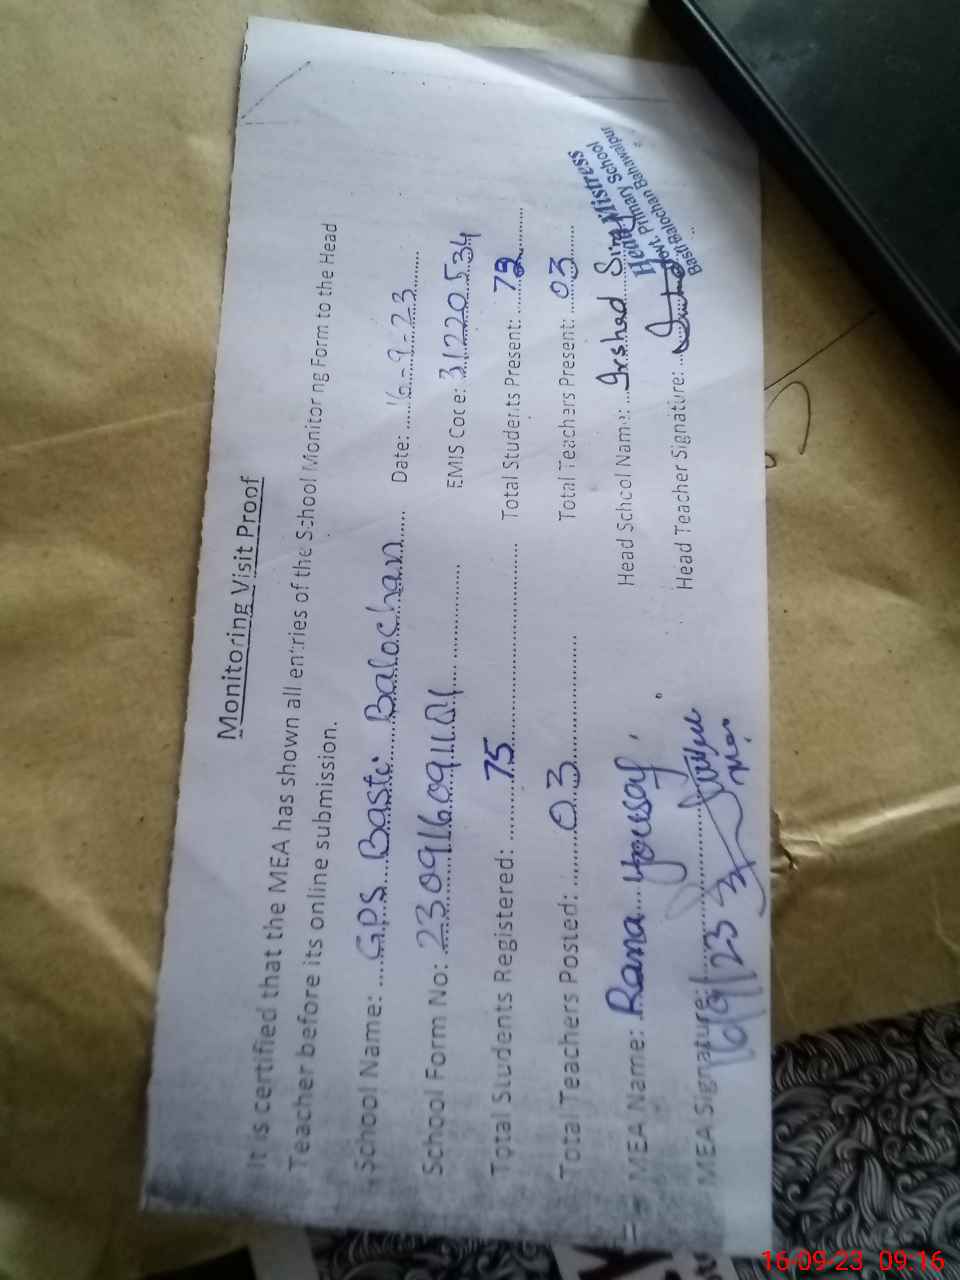 Monitoring Visit Proof
It is certified that the MEA has shown all entries of the School Monitoring Form to the Head
Teacher before its online submission.
School Name: GPS Basti Balochan Date: 16-9-23
School Form No: EMIS Code: 31220534
Total Students Registered: 75 Total Students Present: 72
Total Teachers Posted: 03 Total Teachers Present: 03
MEA Name: Rana Yousaf Head School Name: Irshad
MEA Signature: Head Teacher Signature:
16/9/23
Head Mistress
Govt. Primary School
Basti Balochan Bahawalpur
16-09-23 09:16